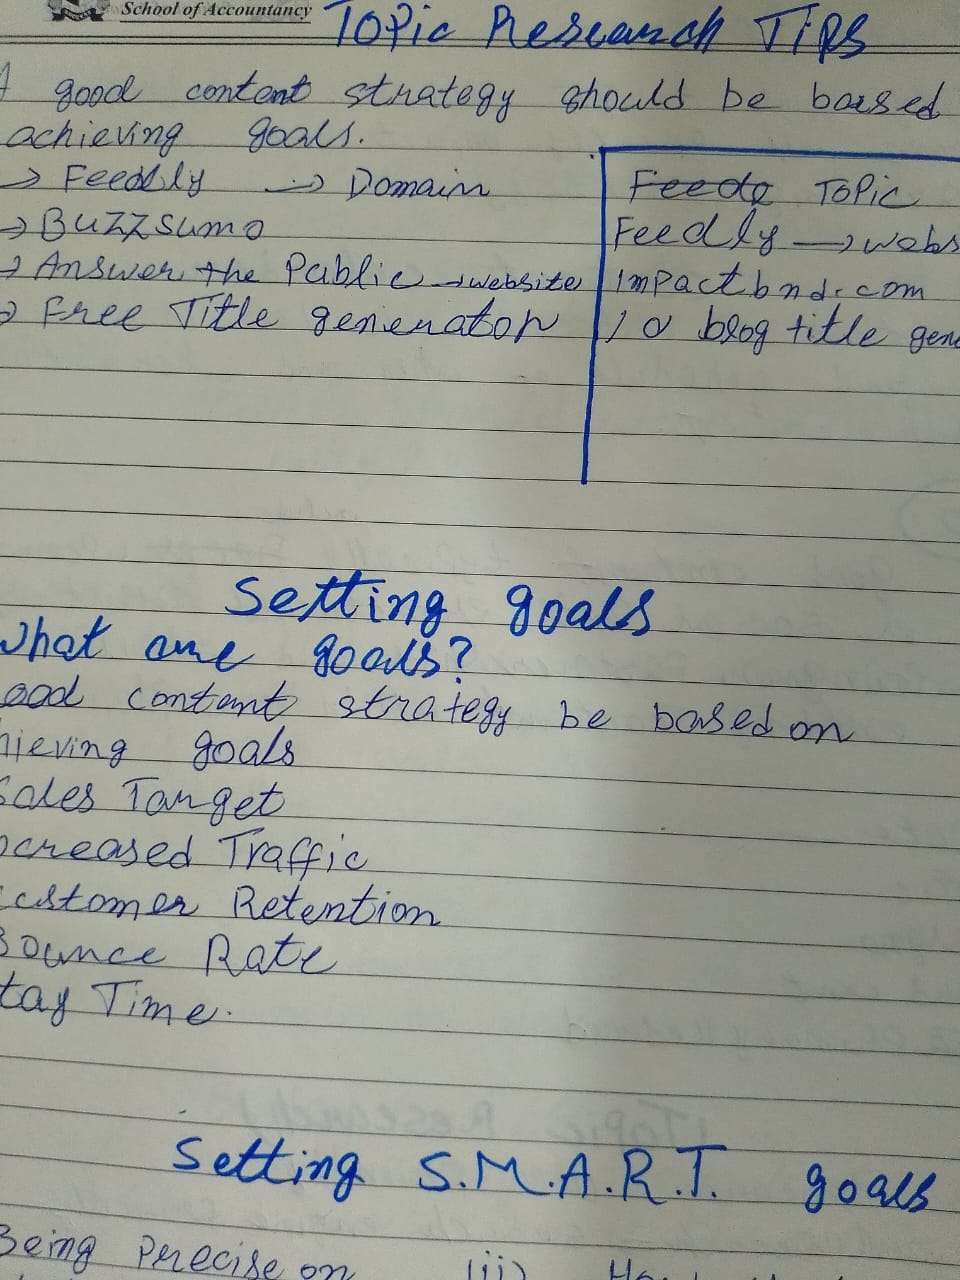 School of Accountancy
Topic Research Tips
A good content strategy should be based
achieving goals.
→ Feedly → Domain
→ BUZZSumo
→ Answer the Public → website
→ Free Title generator
Topic
Feedly → webs
Impactbnd.com
10 blog title gene
Setting goals
What are goals?
ood content strategy be based on
hieving goals
Sales Target
ncreased Traffic
Customer Retention
Bounce Rate
tay Time.
Setting S.M.A.R.T. goals
Being Precise on (ii)